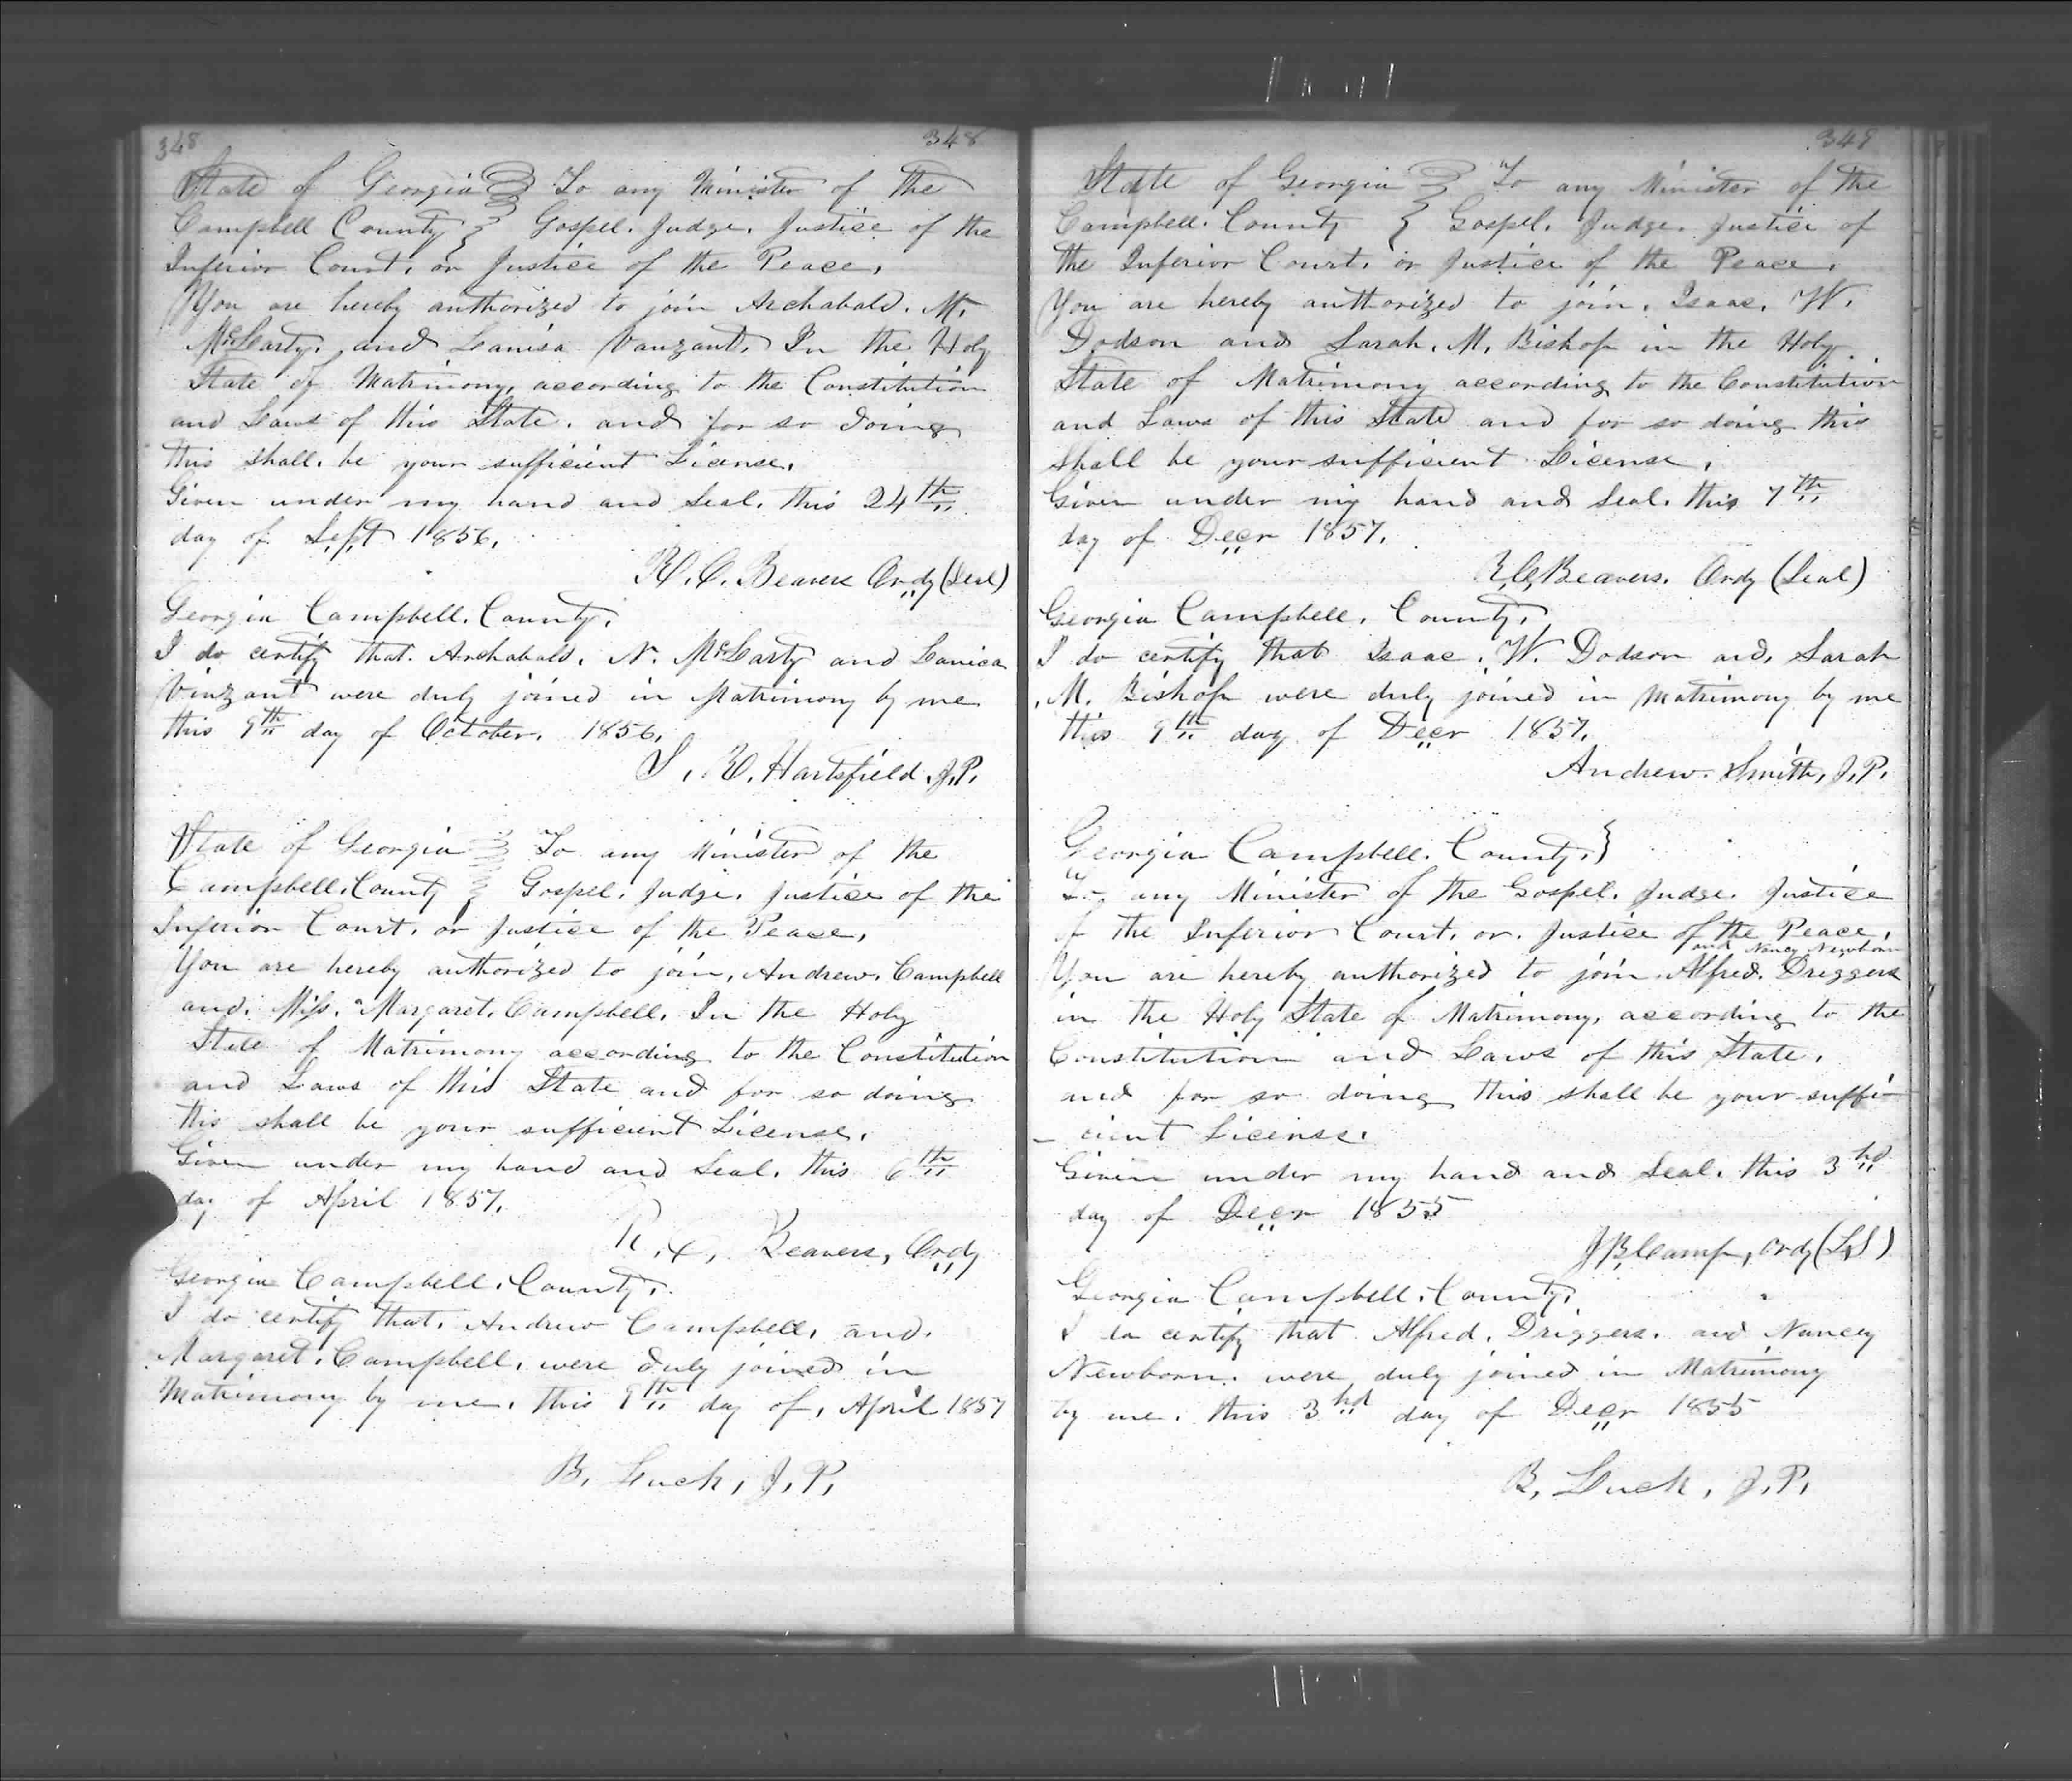 348 348
State of Georgia } To any Minister of the
Campbell County } Gospel. Judge. Justice of the
Inferior Court, or Justice of the Peace,
You are hereby authorized to join Archabald. M.
McLarty, and Lanisa Vanzant, In the Holy
State of Matrimony, according to the Constitution
and Laws of this State. and for so doing
this shall. be your sufficient License,
Given under my hand and Seal. this 24th
day of Sept 1856,
R. C. Beavers Ordy (Seal)
Georgia Campbell. County,
I do certify that. Archabald. N. McLarty and Lanica
Vinzant were duly joined in Matrimony by me
this 9th day of October. 1856,
S. R. Hartsfield J.P.
State of Georgia } To any Minister of the
Campbell. County } Gospel. Judge. Justice of the
Inferior Court. or Justice of the Peace,
You are hereby authorized to join, Andrew. Campbell
and. Miss. Margaret. Campbell. In the Holy
State of Matrimony according to the Constitution
and Laws of this State and for so doing
this shall be your sufficient License,
Given under my hand and Seal. this 6th
day of April 1857,
R. C. Beavers, Ordy
Georgia Campbell. County,
I do certify that. Andrew Campbell. and.
Margaret. Campbell. were duly joined in
Matrimony by me. this 9th day of. April 1857
B. Luck, J. P.
349
State of Georgia } To any Minister of the
Campbell. County } Gospel. Judge. Justice of
the Inferior Court. or Justice of the Peace.
You are hereby authorized to join. Isaac. W.
Dodson and Sarah. M. Bishop in the Holy
State of Matrimony according to the Constitution
and Laws of this State and for so doing this
shall be your sufficient License,
Given under my hand and Seal. this 7th
day of Decr 1857,
R. C. Beavers. Ordy (Seal)
Georgia Campbell. County,
I do certify that Isaac. W. Dodson and. Sarah
M. Bishop were duly joined in Matrimony by me
this 9th day of Decr 1857,
Andrew. Smith, J.P.
Georgia Campbell. County, }
To any Minister of the Gospel. Judge. Justice
of the Inferior Court. or. Justice of the Peace,
and Nancy Newborn
You are hereby authorized to join Alfred. Driggers
in the Holy State of Matrimony, according to the
Constitution and Laws of this State.
and for so doing this shall be your suffi-
- cient License.
Given under my hand and Seal. this 3rd
day of Decr 1855
J B Camp, Ordy (L.S)
Georgia Campbell. County,
I do certify that Alfred. Driggers. and Nancy
Newborn. were duly joined in Matrimony
by me. this 3rd day of Decr 1855
B. Luck, J.P.